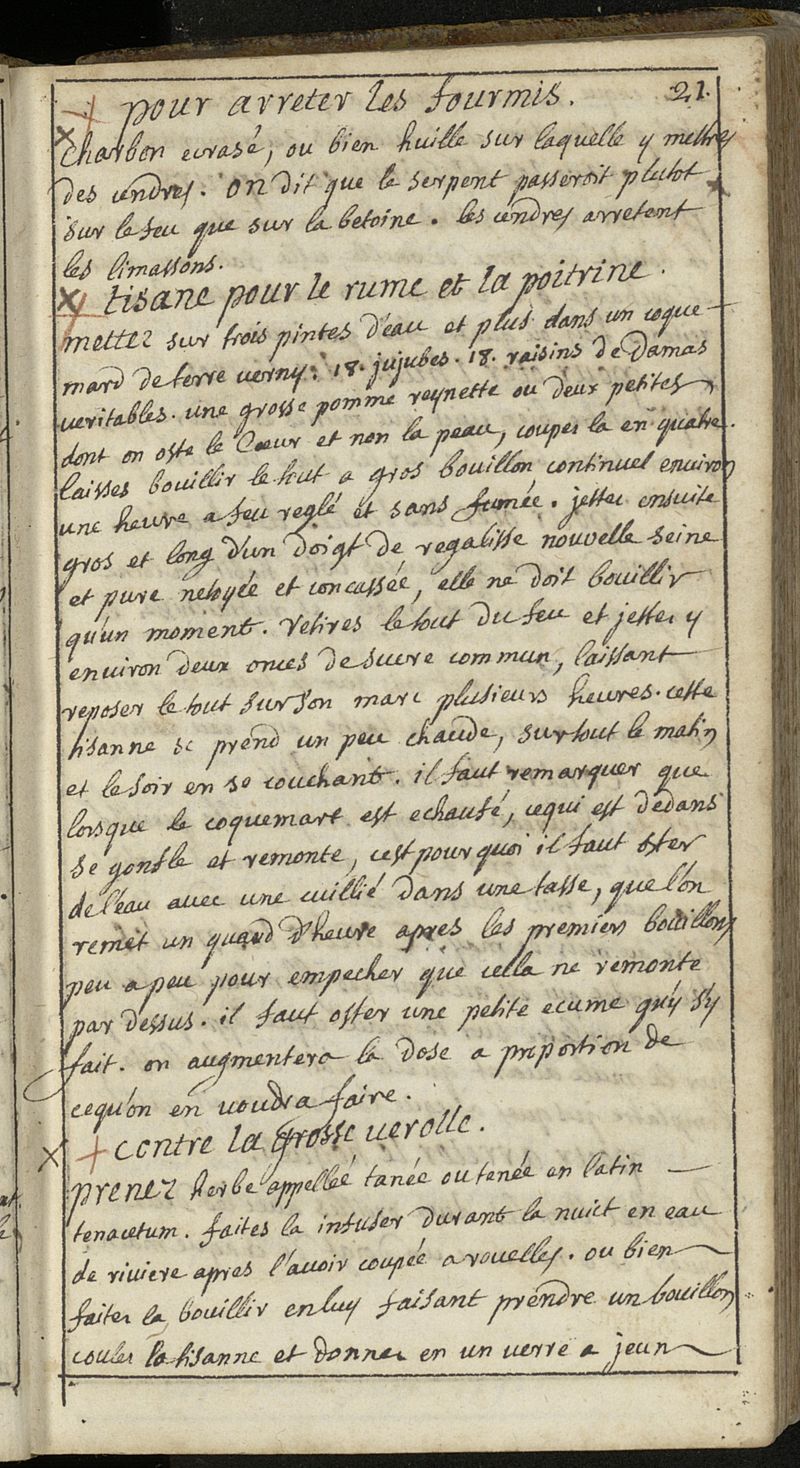 pour arreter les fourmis. 21.
charbon ecrasé, ou bien huille sur laquelle y mettrez
des cendres. on dit que le serpent passeroit plutot
sur le feu que sur la betoine. les cendres arretent
les limassons.
tisane pour le rume et la poitrine.
mettez sur trois pintes d'eau et plus dans un coque-
mard de terre verny. 18. jujubes. 18. raisins de Damas
veritables. une grosse pomme reynette ou deux petites
dont on oste le Coeur et non la peau, coupes la en quatre.
laisses bouillir le tout a gros bouillon continuel environ
une heure a feu reglé et sans fumée. jettez ensuite
gros et long d'un doigt de regalisse nouvelle seine
et pure netoyée et concassée, elle ne doit bouillir
qu'un moment. retires le tout du feu et jettez y
environ deux onces de sucre commun, laissant
reposer le tout sur son marc plusieurs heures. cette
tisanne se prend un peu chaude, surtout le matin
et le soir en se couchant. il faut remarquer que
lorsque le coquemart est echaufé, ce qui est dedans
se gonfle et remonte, c'est pour quoi il faut oster
de l'eau avec une cuillié dans une tasse, que l'on
remet un quard d'heure apres les premiers bouillons
peu a peu pour empecher que cella ne remonte
par dessus. il faut oster une petite ecume qu'y s'y
fait. on augmentera la dose a proportion de
ce qu'on en voudra faire.
contre la grosse verolle.
prenez herbe appelleé tanée ou tenée en latin
tenacetum. faites la infuser durant la nuict en eau
de riviere apres l'avoir coupée a rouelles. ou bien
faites la bouillir en luy faisant prendre un bouillon
coules la tisanne et donnez en un verre a jeun